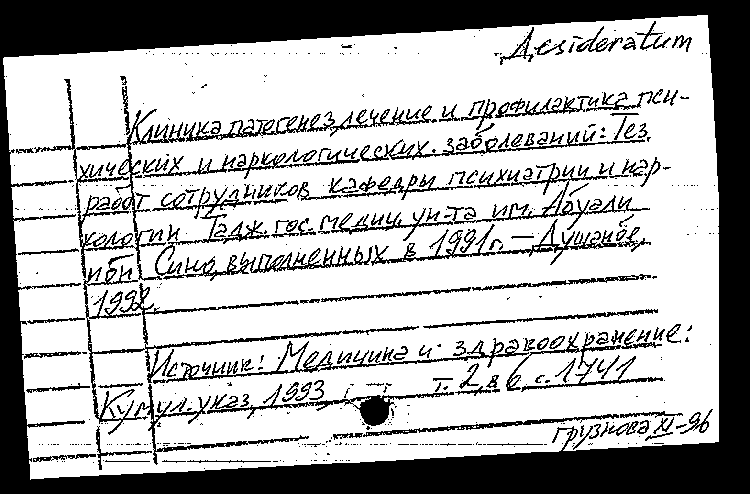 Desideratum
Клиника, патогенез, лечение и профилактика пси-
хических и наркологических заболеваний: Тез.
работ сотрудников кафедры психиатрии и нар-
кологии Тадж. гос. медиц. ун-та им. Абуали
ибн Сино, выполненных в 1991г. — Душанбе,
1992.
Источник: Медицина и здравоохранение:
Кумул. указ, 1993 т. 2, в 6, с. 1741
грузнова XI-96